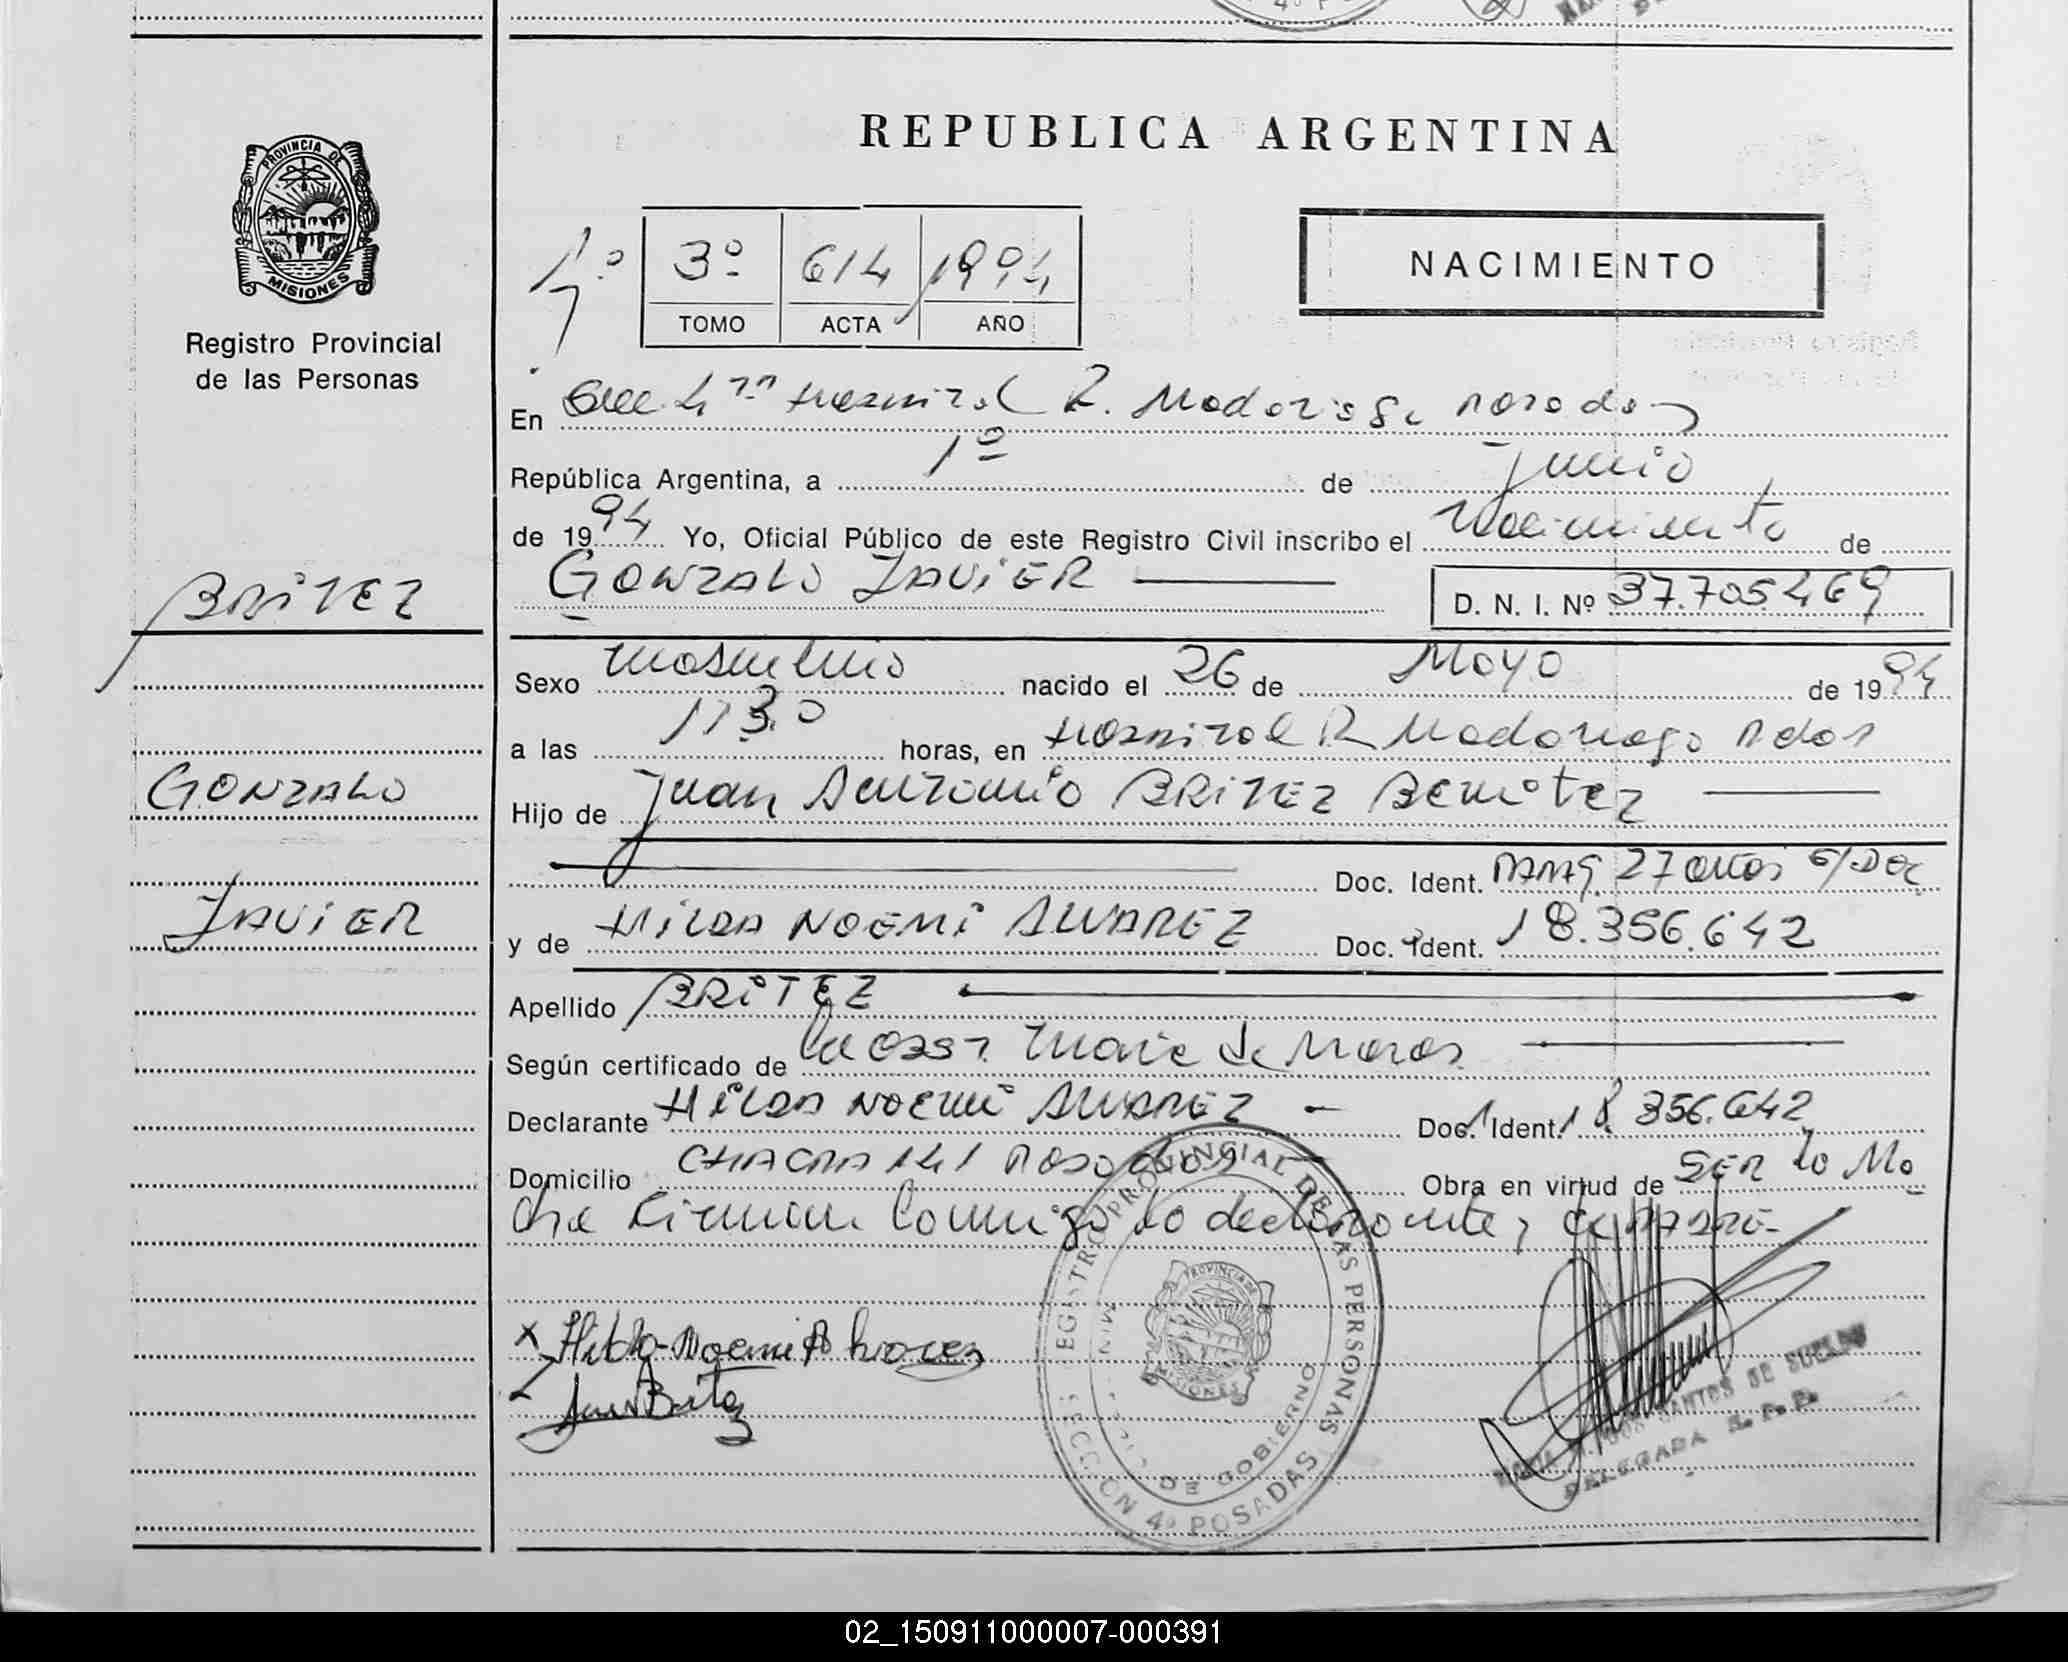 REPUBLICA ARGENTINA
PROVINCIA DE
MISIONES
Registro Provincial
de las Personas
3º 614 1994
TOMO ACTA AÑO
NACIMIENTO
En Secc 4ª Hospital R. Madariaga Posadas
República Argentina, a 1º de Junio
de 1994 Yo, Oficial Público de este Registro Civil inscribo el Nacimiento de
GONZALO JAVIER D. N. I. Nº 37.705.469
BRITEZ
GONZALO
JAVIER
Sexo Masculino nacido el 26 de Mayo de 1994
a las 1730 horas, en Hospital R Madariaga Pdas
Hijo de Juan Antonio BRITEZ Benitez
Doc. Ident. PARAG. 27 años S/DOC
y de HILDA NOEMI ALVAREZ Doc. Ident. 18.356.642
Apellido BRITEZ
Según certificado de
Declarante HILDA NOEMI ALVAREZ Doc. Ident. 18.356.642
Domicilio CHACRA 141 Posadas Obra en virtud de SER la Ma
dre Firman Conmigo la declarante, el PADRE-
x Hilda Noemi Alvarez
Juan Britez
REGISTRO PROVINCIAL DE LAS PERSONAS
PROVINCIA DE
MISIONES
DE GOBIERNO
SECCION 4ª POSADAS
DOS SANTOS DE
DELEGADA R. P. P.
02_150911000007-000391